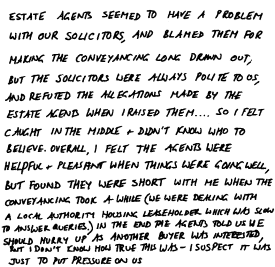 ESTATE AGENTS SEEMED TO HAVE A PROBLEM
WITH OUR SOLICITORS, AND BLAMED THEM FOR
MAKING THE CONVEYANCING LONG DRAWN OUT,
BUT THE SOLICITORS WERE ALWAYS POLITE TO US,
AND REFUTED THE ALLEGATIONS MADE BY THE
ESTATE AGENTS WHEN I RAISED THEM.... SO I FELT
CAUGHT IN THE MIDDLE + DIDN'T KNOW WHO TO
BELIEVE. OVERALL, I FELT THE AGENTS WERE
HELPFUL + PLEASANT WHEN THINGS WERE GOING WELL,
BUT FOUND THEY WERE SHORT WITH ME WHEN THE
CONVEYANCING TOOK A WHILE (WE WERE DEALING WITH
A LOCAL AUTHORITY HOUSING LEASEHOLDER WHICH WAS SLOW
TO ANSWER QUERIES.) IN THE END THE AGENTS TOLD US WE
SHOULD HURRY UP AS ANOTHER BUYER WAS INTERESTED,
BUT I DON'T KNOW HOW TRUE THIS WAS - I SUSPECT IT WAS
JUST TO PUT PRESSURE ON US